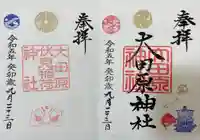 奉拝
大田原神社
令和五年癸卯歳九月二十三日
奉拝
大田原
伏見稲荷
神社
令和五年癸卯歳九月二十三日